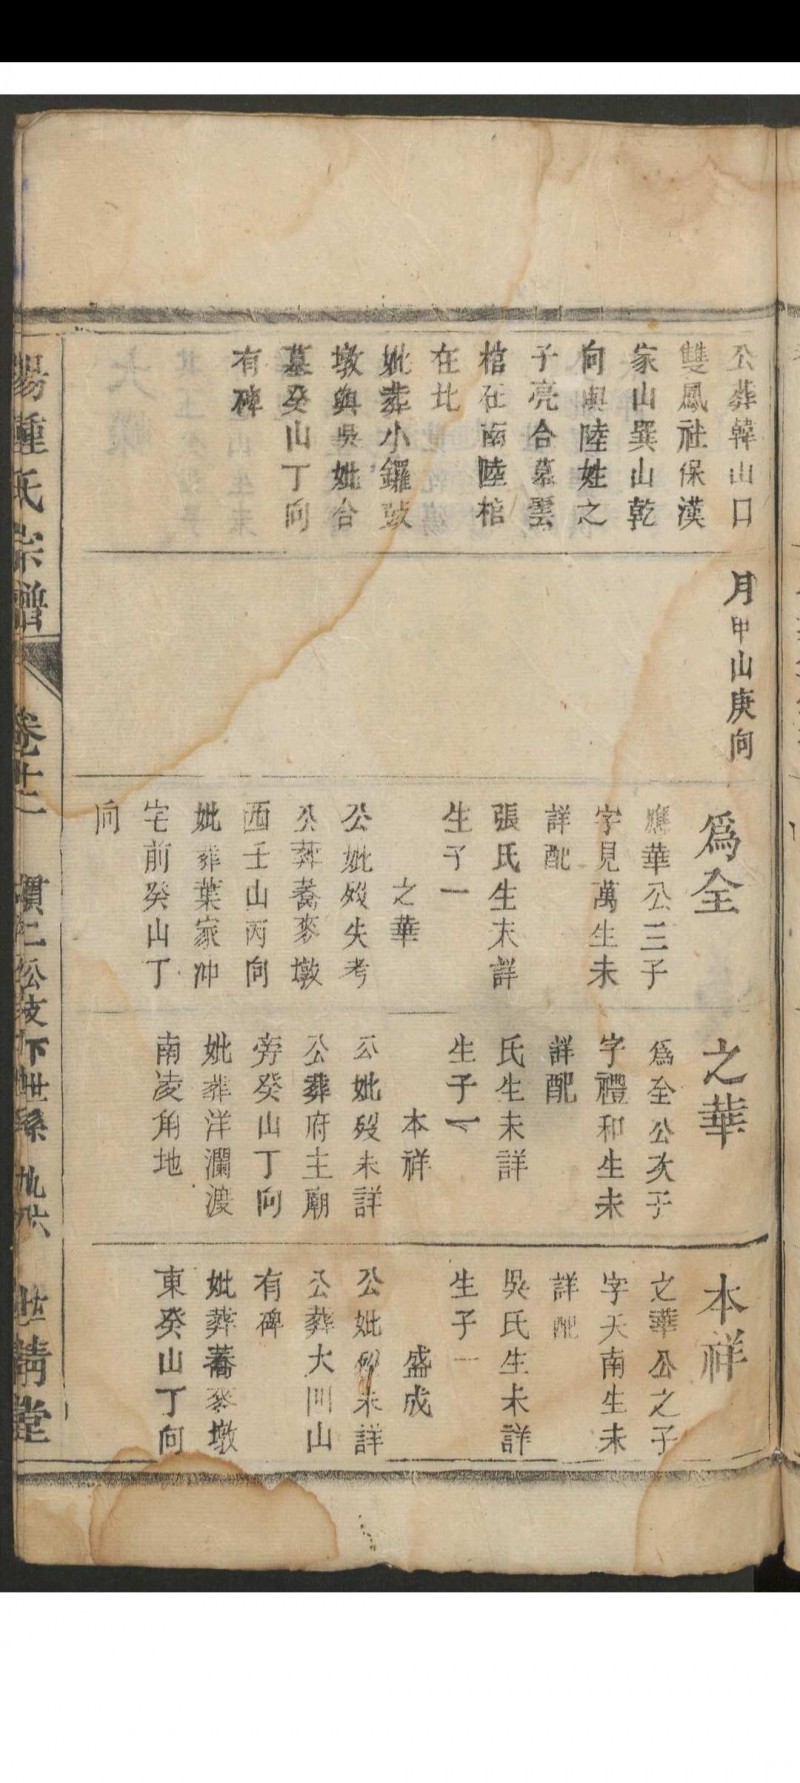 公葬韓山口
雙鳳社保漢
家山巽山乾
向與陸姓之
子亮合墓雲
棺在南陸棺
在北
妣葬小鑼鼓
墩與吳妣合
墓癸山丁向
有碑
月甲山庚向
為全
應華公三子
字見萬生未
詳配
張氏生未詳
生子一
之華
公妣歿失考
公葬蕎麥墩
酉壬山丙向
妣葬葉家冲
宅前癸山丁
向
之華
為全公次子
字禮和生未
詳配
氏生未詳
生子一
本祥
公妣歿未詳
公葬府主廟
旁癸山丁向
妣葬洋瀾渡
南凌角地
本祥
之華公之子
字天南生未
詳配
吳氏生未詳
生子一
盛成
公妣歿未詳
公葬大同山
有碑
妣葬蕎麥墩
東癸山丁向
陽鍾氏宗譜
卷廿二
公支下世系
世
堂